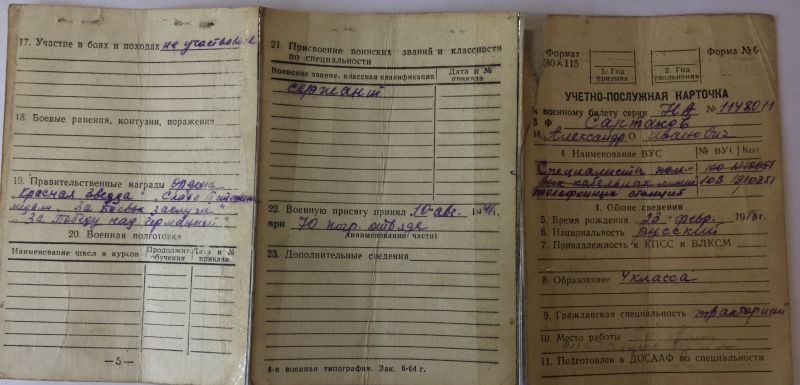 17. Участие в боях и походах не участвовал
18. Боевые ранения, контузии, поражения
19. Правительственные награды Ордена
"Красная Звезда", "Слава
"За боевые заслуги"
"За победу над Германией"
20. Военная подготовка
Наименование школ и курсов
Продолжит. обучения
Дата и № приказа
—5—
21. Присвоение воинских званий и классности
по специальности
Воинское звание, классная квалификация
Дата и № приказа
сержант
22 Военную присягу принял 10 авг. 1941г.
при 70 погр. отряде
(наименование части)
23. Дополнительные сведения
4-я военная типография. Зак. 6-64 г.
Формат
180×115
1. Год
призыва
2. Год
увольнения
Форма №6
УЧЕТНО-ПОСЛУЖНАЯ КАРТОЧКА
к военному билету серии НА № 1148011
3 Ф Сартаков
И. Александр О Иванович
4 Наименование ВУС
№ ВУС
Код
Специалисты
кабельных линий
103
телефонных станций
1. Общие сведения
5. Время рождения 23 февр. 1918г.
6. Национальность русский
7. Принадлежность к КПСС и ВЛКСМ
8. Образование 4 класса
9. Гражданская специальность тракторист
10. Место работы
11. Подготовлен в ДОСААФ по специальности